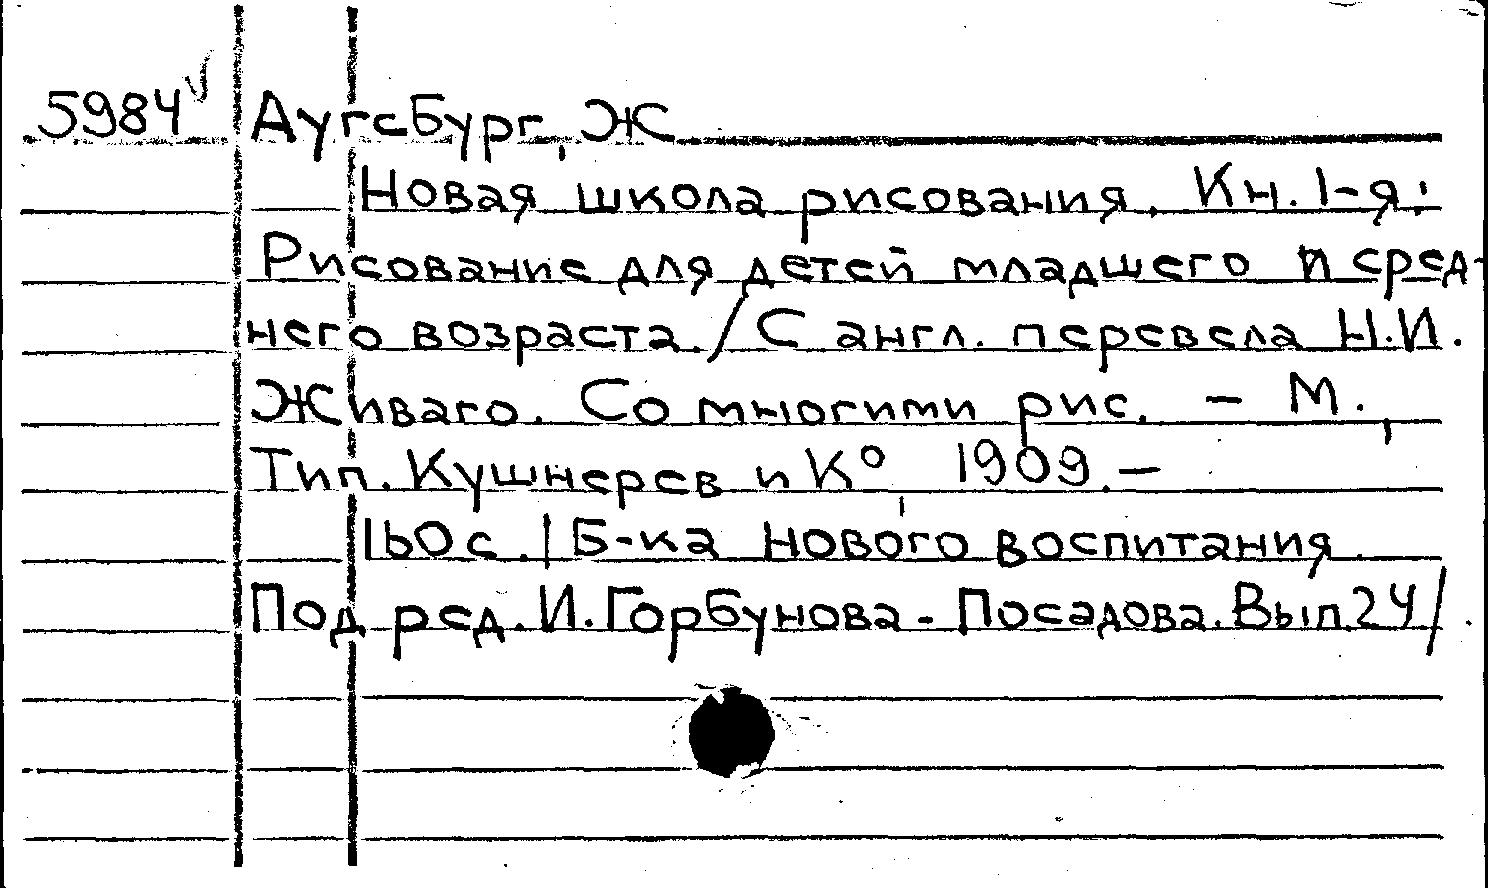 5984 Аугсбург, Ж
Новая школа рисования. Кн. 1-я:
Рисование для детей младшего и сред-
него возраста. / С англ. перевела Н.И.
Живаго. Со многими рис. – М.,
Тип. Кушнерев и К°, 1909. –
160 с. | Б-ка нового воспитания.
Под ред. И. Горбунова-Посадова. Вып. 24/